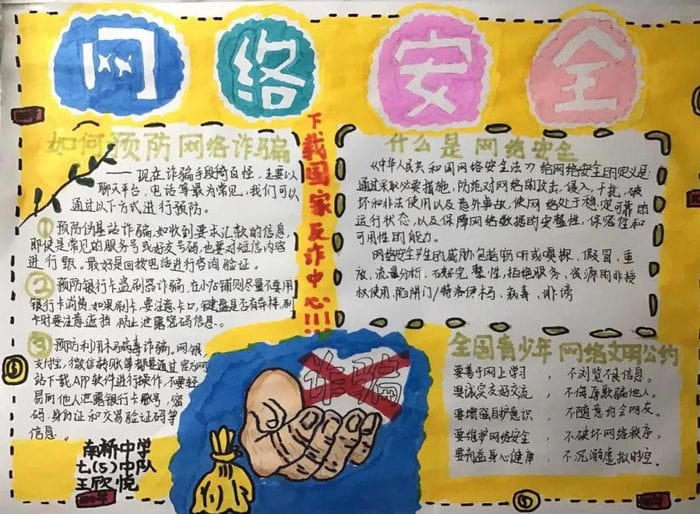 网络安全
如何预防网络诈骗
——现在诈骗手段猗自怪,主要以
聊天平台,电话等最为常见,我们可以
通过以下方式进行预防。
① 预防伪基站诈骗。如收到要求汇款的信息,
即使是常见的服务号或好友号码,也要对短信内容
进行甄。最好是回拨电话进行咨询验证。
② 预防银行卡盗刷器诈骗,在小店铺则尽量不要用
银行卡消费。如果刷卡,要注意卡口,键盘是否有异样,刷
卡时要注意遮挡,防止泄露密码信息。
③ 预防利用木马病毒诈骗。网银,
支付宝,微信转账等都要通过官方网
站下载APP软件进行操作,不要轻
易向他人泄露银行卡账号,密
码,身份证和交易验证码等
信息。
南桥中学
七(5)中队
王欣悦
下载国家反诈中心!!!
什么是网络安全
《中华人民共和国网络安全法》给网络安全的定义是:
通过采取必要措施,防范对网络的攻击,侵入,干扰,破
坏和非法使用以及意外事故,使网络处于稳定可靠的
运行状态,以及保障网络数据的完整性,保密性和
可用性的能力。
网络安全产生的威胁包括窃听或嗅探,假冒,重
放,流量分析,破坏完整性,拒绝服务,资源的非授
权使用,陷阱门/特洛伊木马,病毒,诽谤
诈骗
全国青少年网络文明公约
要善于网上学习,不浏览不良信息。
要诚实友好交流,不侮辱欺骗他人。
要增强自护意识,不随意约会网友。
要维护网络安全,不破坏网络秩序,
要有益身心健康,不沉溺虚拟时空。